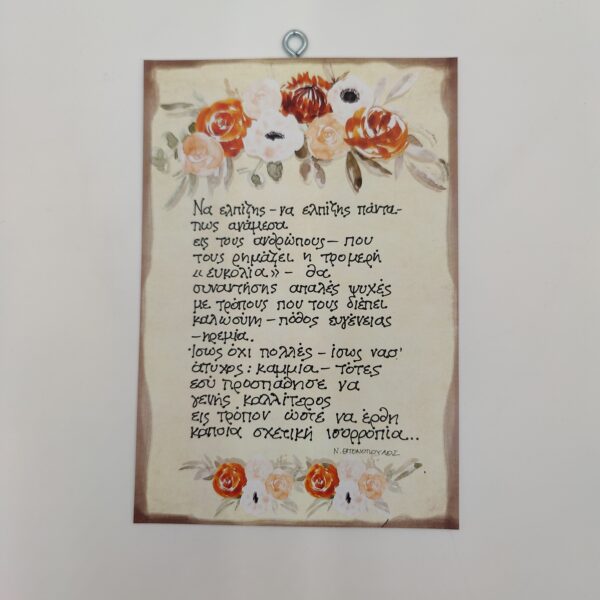 Να ελπίζης – να ελπίζης πάντα-
πως ανάμεσα
εις τους ανθρώπους – που
τους ρημάζει η τρομερή
« ευκολία » – θα
συναντήσης απαλές ψυχές
με τρόπους που τους διέπει
καλωσύνη – πόθος ευγένειας
– ηρεμία.
Ίσως όχι πολλές – ίσως νασ'
άτυχος: καμμία – τότες
εσύ προσπάθησε να
γενής καλλίτερος
εις τρόπον ώστε να έρθη
κάποια σχετική ισορροπία...
Ν. ΕΓΓΟΝΟΠΟΥΛΟΣ